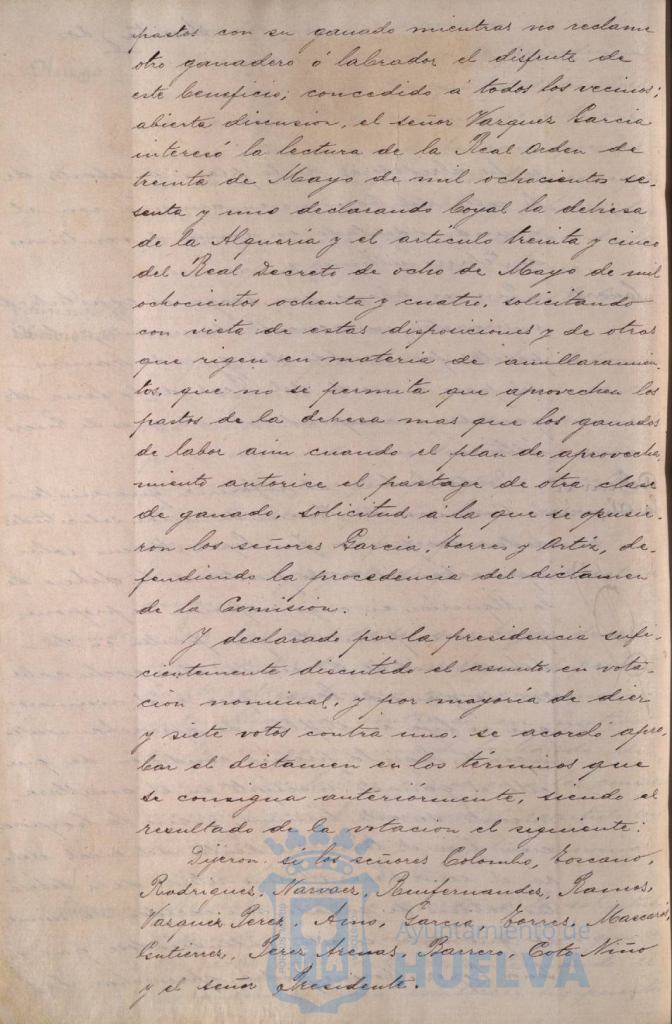 pastos con su ganado mientras no reclame
otro ganadero ó labrador el disfrute de
este beneficio, concedido á todos los vecinos;
abierta discusion, el señor Vazquez Garcia
interesó la lectura de la Real orden de
treinta de Mayo de mil ochocientos se-
senta y uno declarando boyal la dehesa
de la Alqueria y el articulo treinta y cinco
del Real Decreto de ocho de Mayo de mil
ochocientos ochenta y cuatro, solicitando
con vista de estas disposiciones y de otras
que rigen en materia de amillaramien-
tos, que no se permita que aprovechen los
pastos de la dehesa mas que los ganados
de labor aun cuando el plan de aprovecha-
miento autorice el pastage de otra clase
de ganado, solicitud á la que se opusie-
ron los señores Garcia, Torres y Ortiz, de-
fendiendo la procedencia del dictamen
de la Comision.
Y declarado por la presidencia sufi-
cientemente discutido el asunto, en vota-
ción nominal, y por mayoría de diez
y siete votos contra uno, se acordó apro-
bar el dictamen en los términos que
se consigna anteriormente, siendo el
resultado de la votacion el siguiente:
Dijeron si los señores Colombo, Toscano,
Rodriguez, Narvaez, Ruifernandez, Ramos,
Vazquez Perez, Amo, Garcia, Torres, Mascarós,
Gutierrez, Perez Arenas, Barrero, Coto, Niño
y el señor Presidente.
Ayuntamiento de
HUELVA